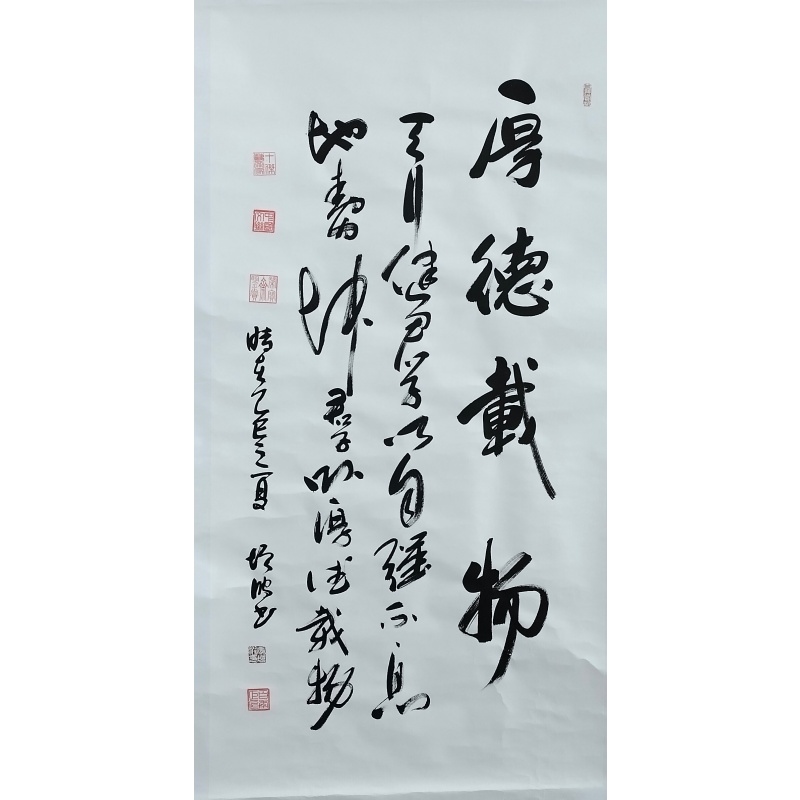 厚德載物
天行健君子以自强不息
地勢坤君子以厚德載物
時在乙巳之夏
书